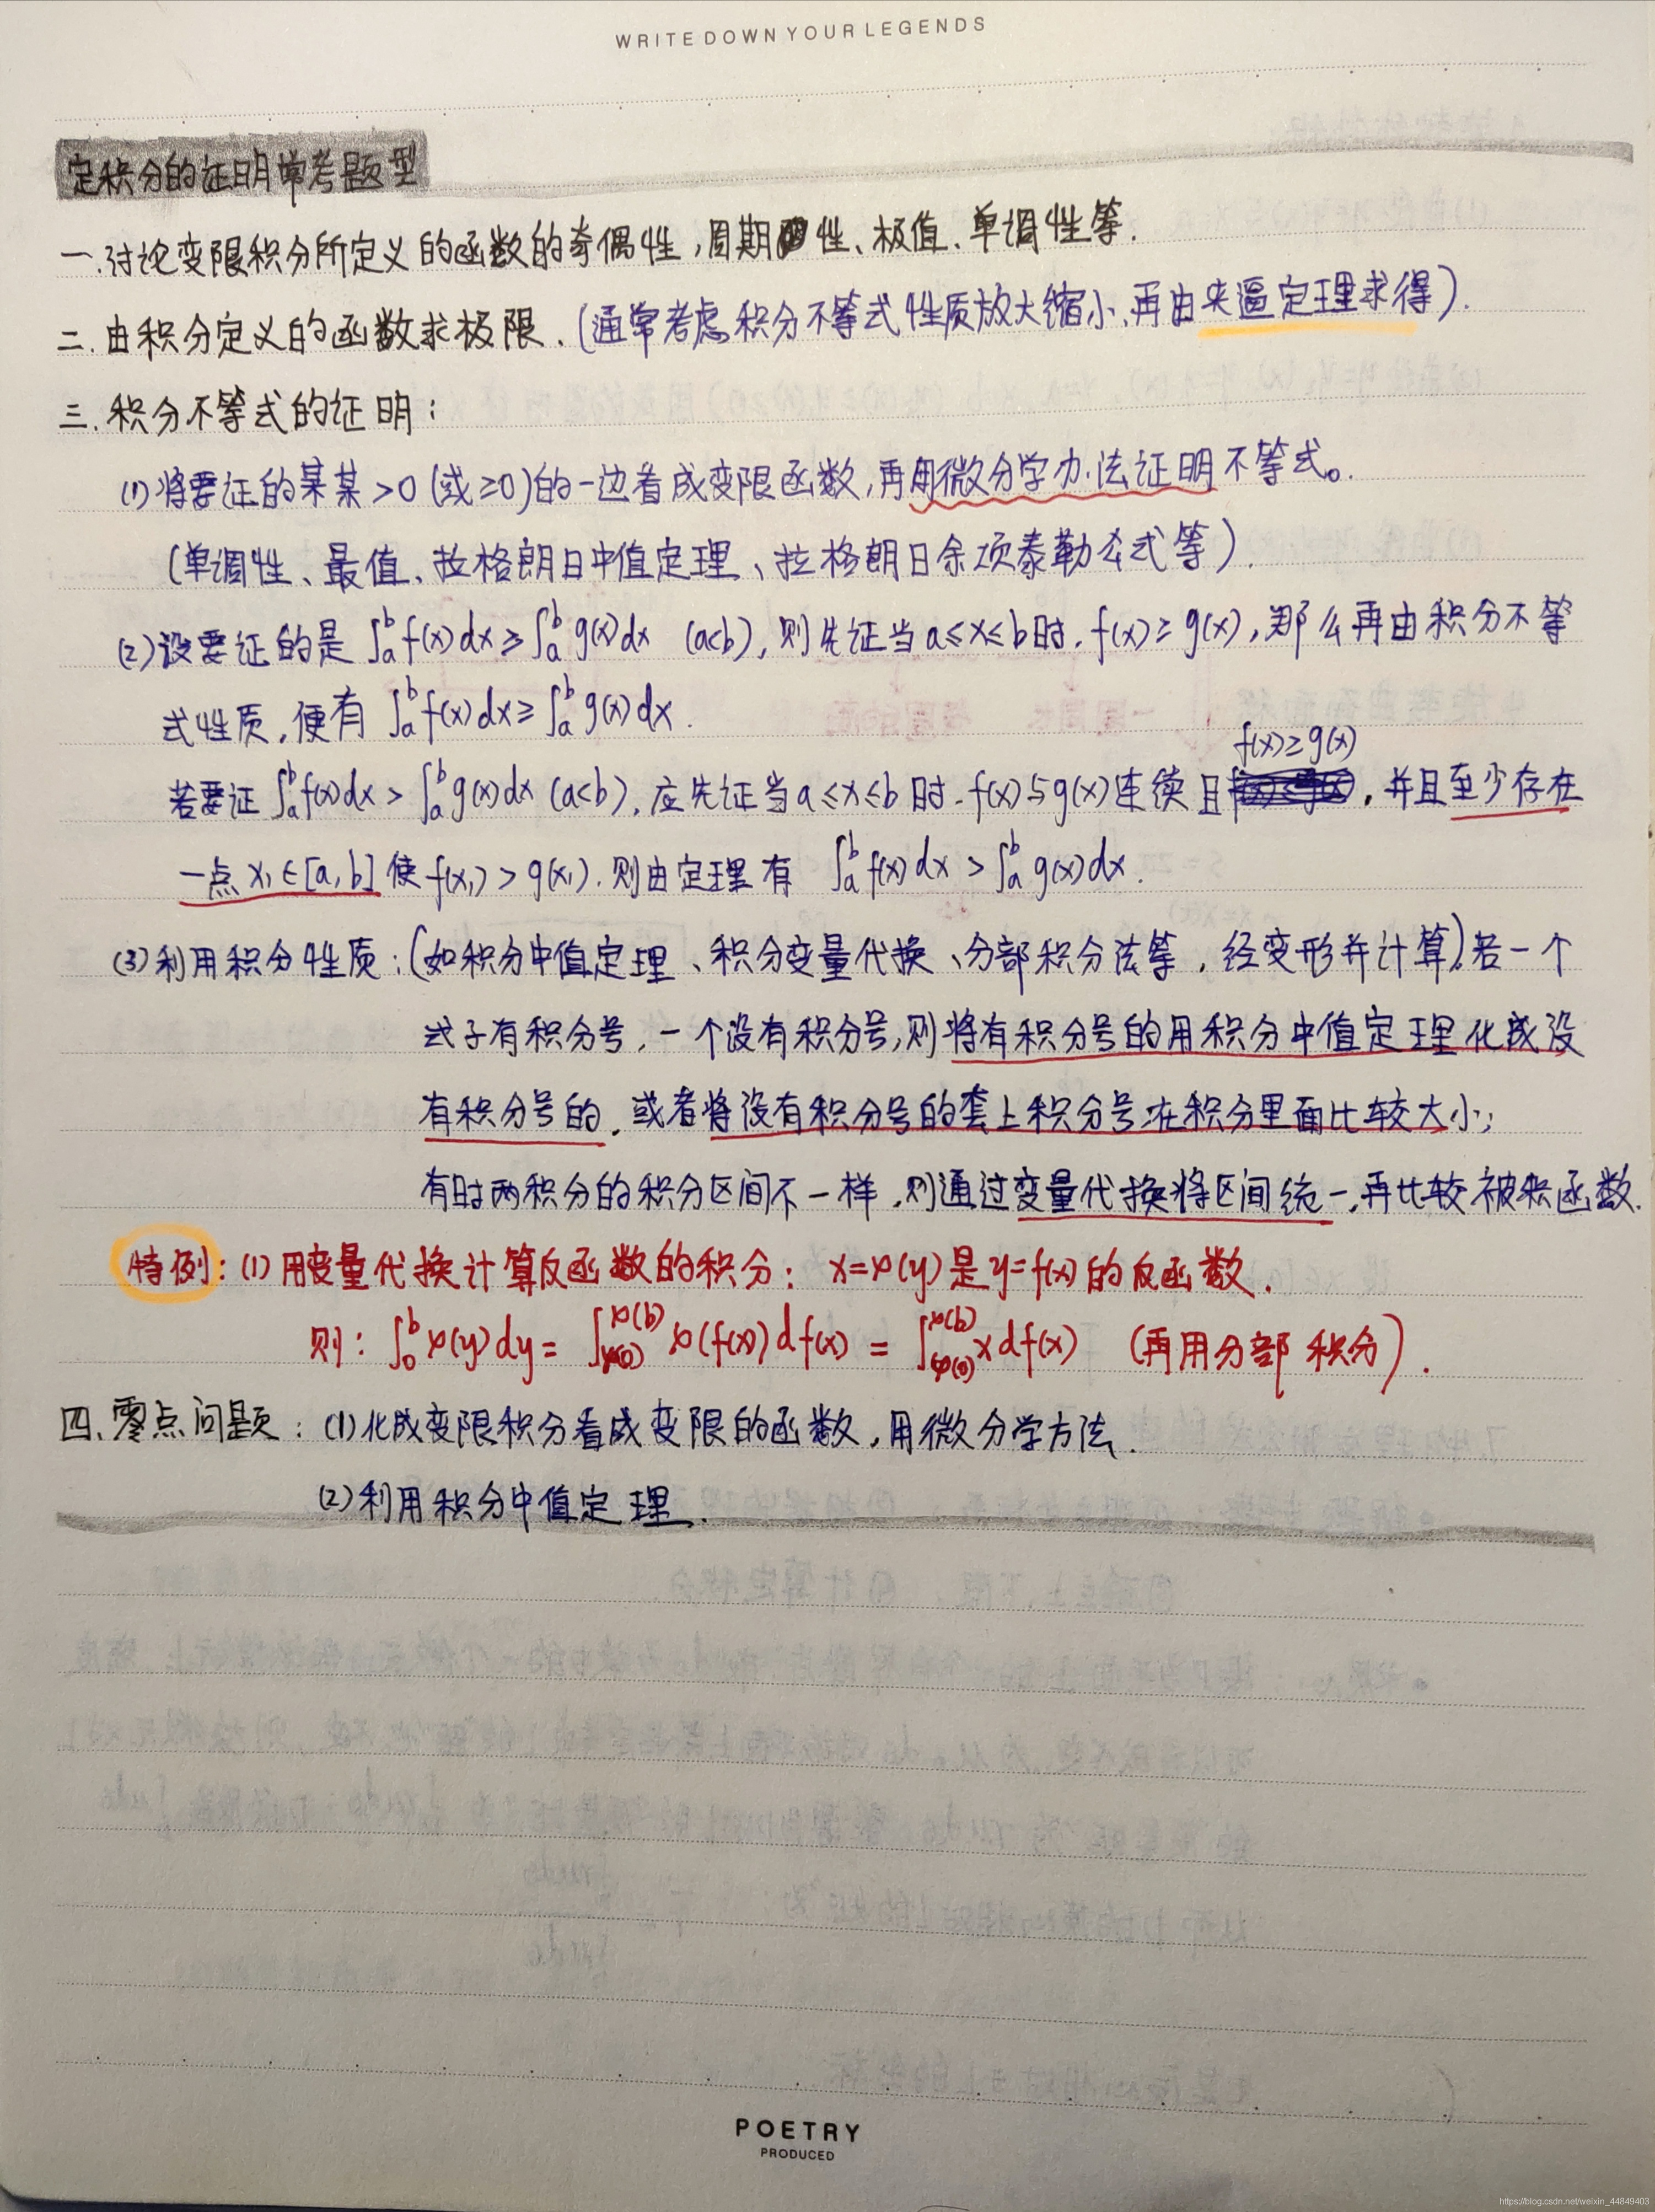 WRITE DOWN YOUR LEGENDS
定积分的证明常考题型
一.讨论变限积分所定义的函数的奇偶性,周期性、极值、单调性等.
二.由积分定义的函数求极限.(通常考虑积分不等式性质放大缩小,再由夹逼定理求得).
三.积分不等式的证明:
(1)将要证的某某>0(或≥0)的一边看成变限函数,再用微分学办法证明不等式。
(单调性、最值、拉格朗日中值定理、拉格朗日余项泰勒公式等).
(2)设要证的是 ∫ₐᵇf(x)dx≥∫ₐᵇg(x)dx (a<b),则先证当a≤x≤b时,f(x)≥g(x),那么再由积分不等
式性质,便有 ∫ₐᵇf(x)dx≥∫ₐᵇg(x)dx.
f(x)≥g(x)
若要证∫ₐᵇf(x)dx>∫ₐᵇg(x)dx (a<b),应先证当a≤x≤b时.f(x)与g(x)连续且,并且至少存在
一点x₁∈[a,b]使f(x₁)>g(x₁).则由定理有 ∫ₐᵇf(x)dx>∫ₐᵇg(x)dx.
(3)利用积分性质:(如积分中值定理、积分变量代换、分部积分法等,经变形并计算).若一个
式子有积分号,一个没有积分号,则将有积分号的用积分中值定理化成没
有积分号的,或者将没有积分号的套上积分号在积分里面比较大小;
有时两积分的积分区间不一样,则通过变量代换将区间统一,再比较被积函数.
特例:(1)用变量代换计算反函数的积分: x=φ(y)是y=f(x)的反函数.
则:∫₀ᵇφ(y)dy=∫_{φ(0)}^{φ(b)}φ(f(x))df(x)=∫_{φ(0)}^{φ(b)}xdf(x) (再用分部积分).
四.零点问题:(1)化成变限积分看成变限的函数,用微分学方法.
(2)利用积分中值定理.
POETRY
PRODUCED
https://blog.csdn.net/weixin_44849403